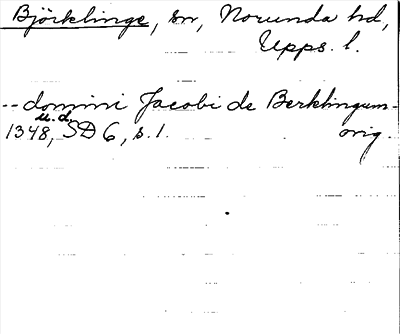 Björklinge, sn, Norunda hd,
Upps. l.
-- domini Jacobi de Berklingum -
u. d.
1348, SD 6, s. 1. orig.